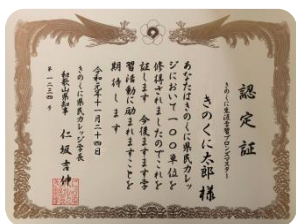 認定証
きのくに生涯学習ブロンズマスター
きのくに太郎 様
あなたはきのくに県民カレッ
ジにおいて一〇〇単位を
修得されましたのでこれを
証します 今後ますます学
習活動に励まれますことを
期待します
令和元年十一月二十四日
きのくに県民カレッジ学長
和歌山県知事 仁坂吉伸
第一二三四号